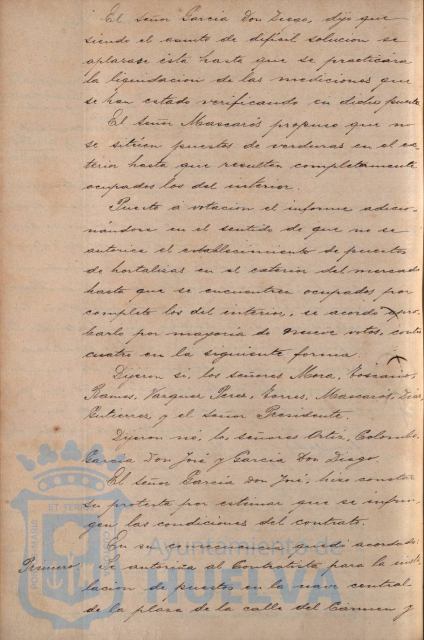 El Señor Garcia Don Diego, dijo que
siendo el asunto de difisil solucion se
aplazase ésta hasta que se practicára
la liquidacion de las mediciones que
se han estado verificando en dichos puestos
El Señor Mascarós propuso que no
se sitúen puestos de verduras en el ex
terior hasta que resulten completamente
ocupados los del interior.
Puesto a votacion el informe adicio-
nándose en el sentido de que no se
autorice el establecimiento de puestos
de hortalisas en el exterior del mercado
hasta que se encuentren ocupados por
completo los del interior, se acordo apro-
barlo por mayoria de nueve votos, contra
cuatro en la siguiente forma.
Dijeron si, los señores Mora, Toscano,
Ramos, Vazquez Perez, Torres, Mascarós, Diaz,
Gutierrez, y el señor Presidente
Dijeron nó, los señores Ortiz, Colombo,
Garcia Don José y Garcia Don Diego.
El Señor Garcia Don José, hizo constar
su protesta por estimar que se infrin-
gen las condiciones del contrato.
En su consecuencia quedó acordado:
Primero. Se autoriza al Contratista para la insta-
lacion de puestos en la nave central
de la plaza de la calle del Carmen y
Ayuntamiento de
HUELVA